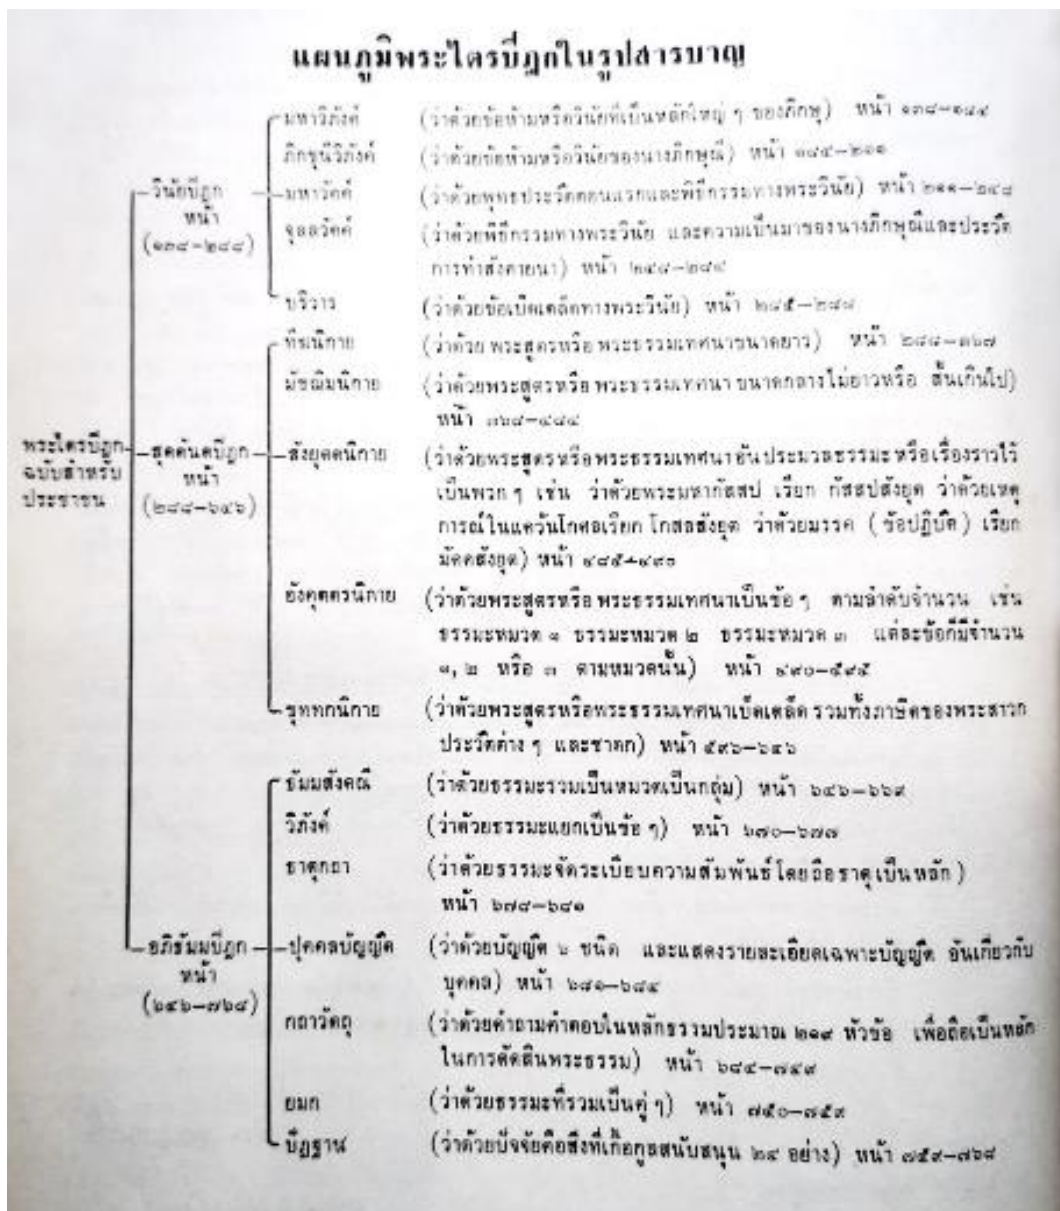 แผนภูมิพระไตรปิฎกในรูปสารบาญ
พระไตรปิฎก
ฉบับสำหรับ
ประชาชน
วินัยปิฎก
หน้า
มหาวิภังค์ (ว่าด้วยข้อห้ามหรือวินัยที่เป็นหลักใหญ่ ๆ ของภิกษุ) หน้า
ภิกขุนีวิภังค์ (ว่าด้วยข้อห้ามหรือวินัยของนางภิกษุณี) หน้า
มหาวัคค์ (ว่าด้วยพุทธประวัติตอนแรกและพิธีกรรมทางพระวินัย) หน้า ๒๑๑–๒๔๘
จุลลวัคค์ (ว่าด้วยพิธีกรรมทางพระวินัย และความเป็นมาของนางภิกษุณีและประวัติ
การทำสังคายนา) หน้า
บริวาร (ว่าด้วยข้อเบ็ดเตล็ดทางพระวินัย) หน้า ๒๘๕–๒๘๘
สุตตันตปิฎก
หน้า
(๒๘๘–๖๔๖)
ทีฆนิกาย (ว่าด้วย พระสูตรหรือ พระธรรมเทศนาขนาดยาว) หน้า ๒๘๘–๓๖๗
มัชฌิมนิกาย (ว่าด้วยพระสูตรหรือ พระธรรมเทศนา ขนาดกลางไม่ยาวหรือ สั้นเกินไป)
หน้า ๓๖๘–๔๘๔
สังยุตตนิกาย (ว่าด้วยพระสูตรหรือพระธรรมเทศนาอันประมวลธรรมะหรือเรื่องราวไว้
เป็นพวก ๆ เช่น ว่าด้วยพระมหากัสสป เรียก กัสสปสังยุต ว่าด้วยเหตุ
การณ์ในแคว้นโกศลเรียก โกสลสังยุต ว่าด้วยมรรค (ข้อปฏิบัติ) เรียก
มัคคสังยุต) หน้า
อังคุตตรนิกาย (ว่าด้วยพระสูตรหรือ พระธรรมเทศนาเป็นข้อ ๆ ตามลำดับจำนวน เช่น
ธรรมะหมวด ๑ ธรรมะหมวด ๒ ธรรมะหมวด ๓ แต่ละข้อก็มีจำนวน
๑, ๒ หรือ ๓ ตามหมวดนั้น) หน้า ๔๙๐–๕๙๕
ขุททกนิกาย (ว่าด้วยพระสูตรหรือพระธรรมเทศนาเบ็ดเตล็ด รวมทั้งภาษิตของพระสาวก
ประวัติต่าง ๆ และชาดก) หน้า ๕๙๖–๖๔๖
อภิธัมมปิฎก
หน้า
(๖๔๖–๗๖๘)
ธัมมสังคณี (ว่าด้วยธรรมะรวมเป็นหมวดเป็นกลุ่ม) หน้า ๖๔๖–๖๖๙
วิภังค์ (ว่าด้วยธรรมะแยกเป็นข้อ ๆ) หน้า ๖๗๐–๖๗๗
ธาตุกถา (ว่าด้วยธรรมะจัดระเบียบความสัมพันธ์โดยถือธาตุเป็นหลัก)
หน้า ๖๗๘–๖๘๑
ปุคคลบัญญัติ (ว่าด้วยบัญญัติ ๖ ชนิด และแสดงรายละเอียดเฉพาะบัญญัติ อันเกี่ยวกับ
บุคคล) หน้า ๖๘๑–๖๘๔
กถาวัตถุ (ว่าด้วยคำถามคำตอบในหลักธรรมประมาณ ๒๑๙ หัวข้อ เพื่อถือเป็นหลัก
ในการตัดสินพระธรรม) หน้า ๖๘๔–๗๔๙
ยมก (ว่าด้วยธรรมะที่รวมเป็นคู่ ๆ) หน้า ๗๕๐–๗๕๙
ปัฏฐาน (ว่าด้วยปัจจัยคือสิ่งที่เกื้อกูลสนับสนุน ๒๔ อย่าง) หน้า ๗๕๙–๗๖๘